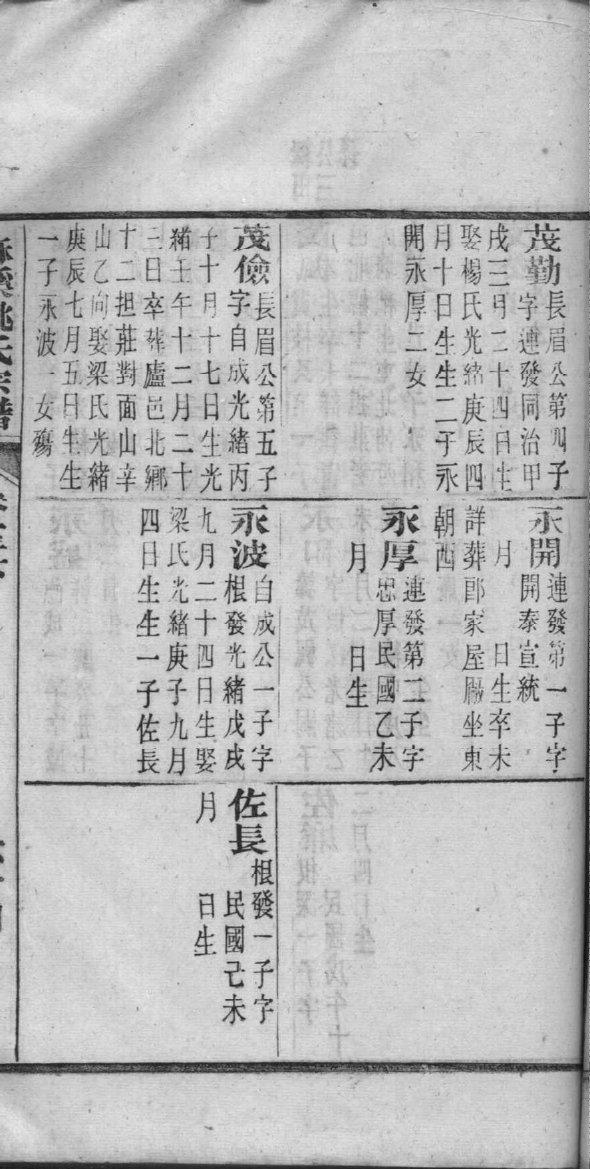 茂勤長眉公第四子
字連發同治甲
戌三月二十四日生
娶楊氏光緒庚辰四
月十日生生二子永
開永厚二女
茂儉長眉公第五子
字自成光緒丙
子十月十七日生光
緒壬午十二月二十
三日卒葬廬邑北鄉
十二担莊對面山辛
山乙向娶梁氏光緒
庚辰七月五日生生
一子永波一女殤
永開連發第一子字
開泰宣統
月 日生卒未
詳葬郎家屋廄坐東
朝西
永厚連發第二子字
忠厚民國乙未
月 日生
永波自成公一子字
根發光緒戊戌
九月二十四日生娶
梁氏光緒庚子九月
四日生生一子佐長
佐長根發一子字
民國己未
月 日生
姚氏宗譜